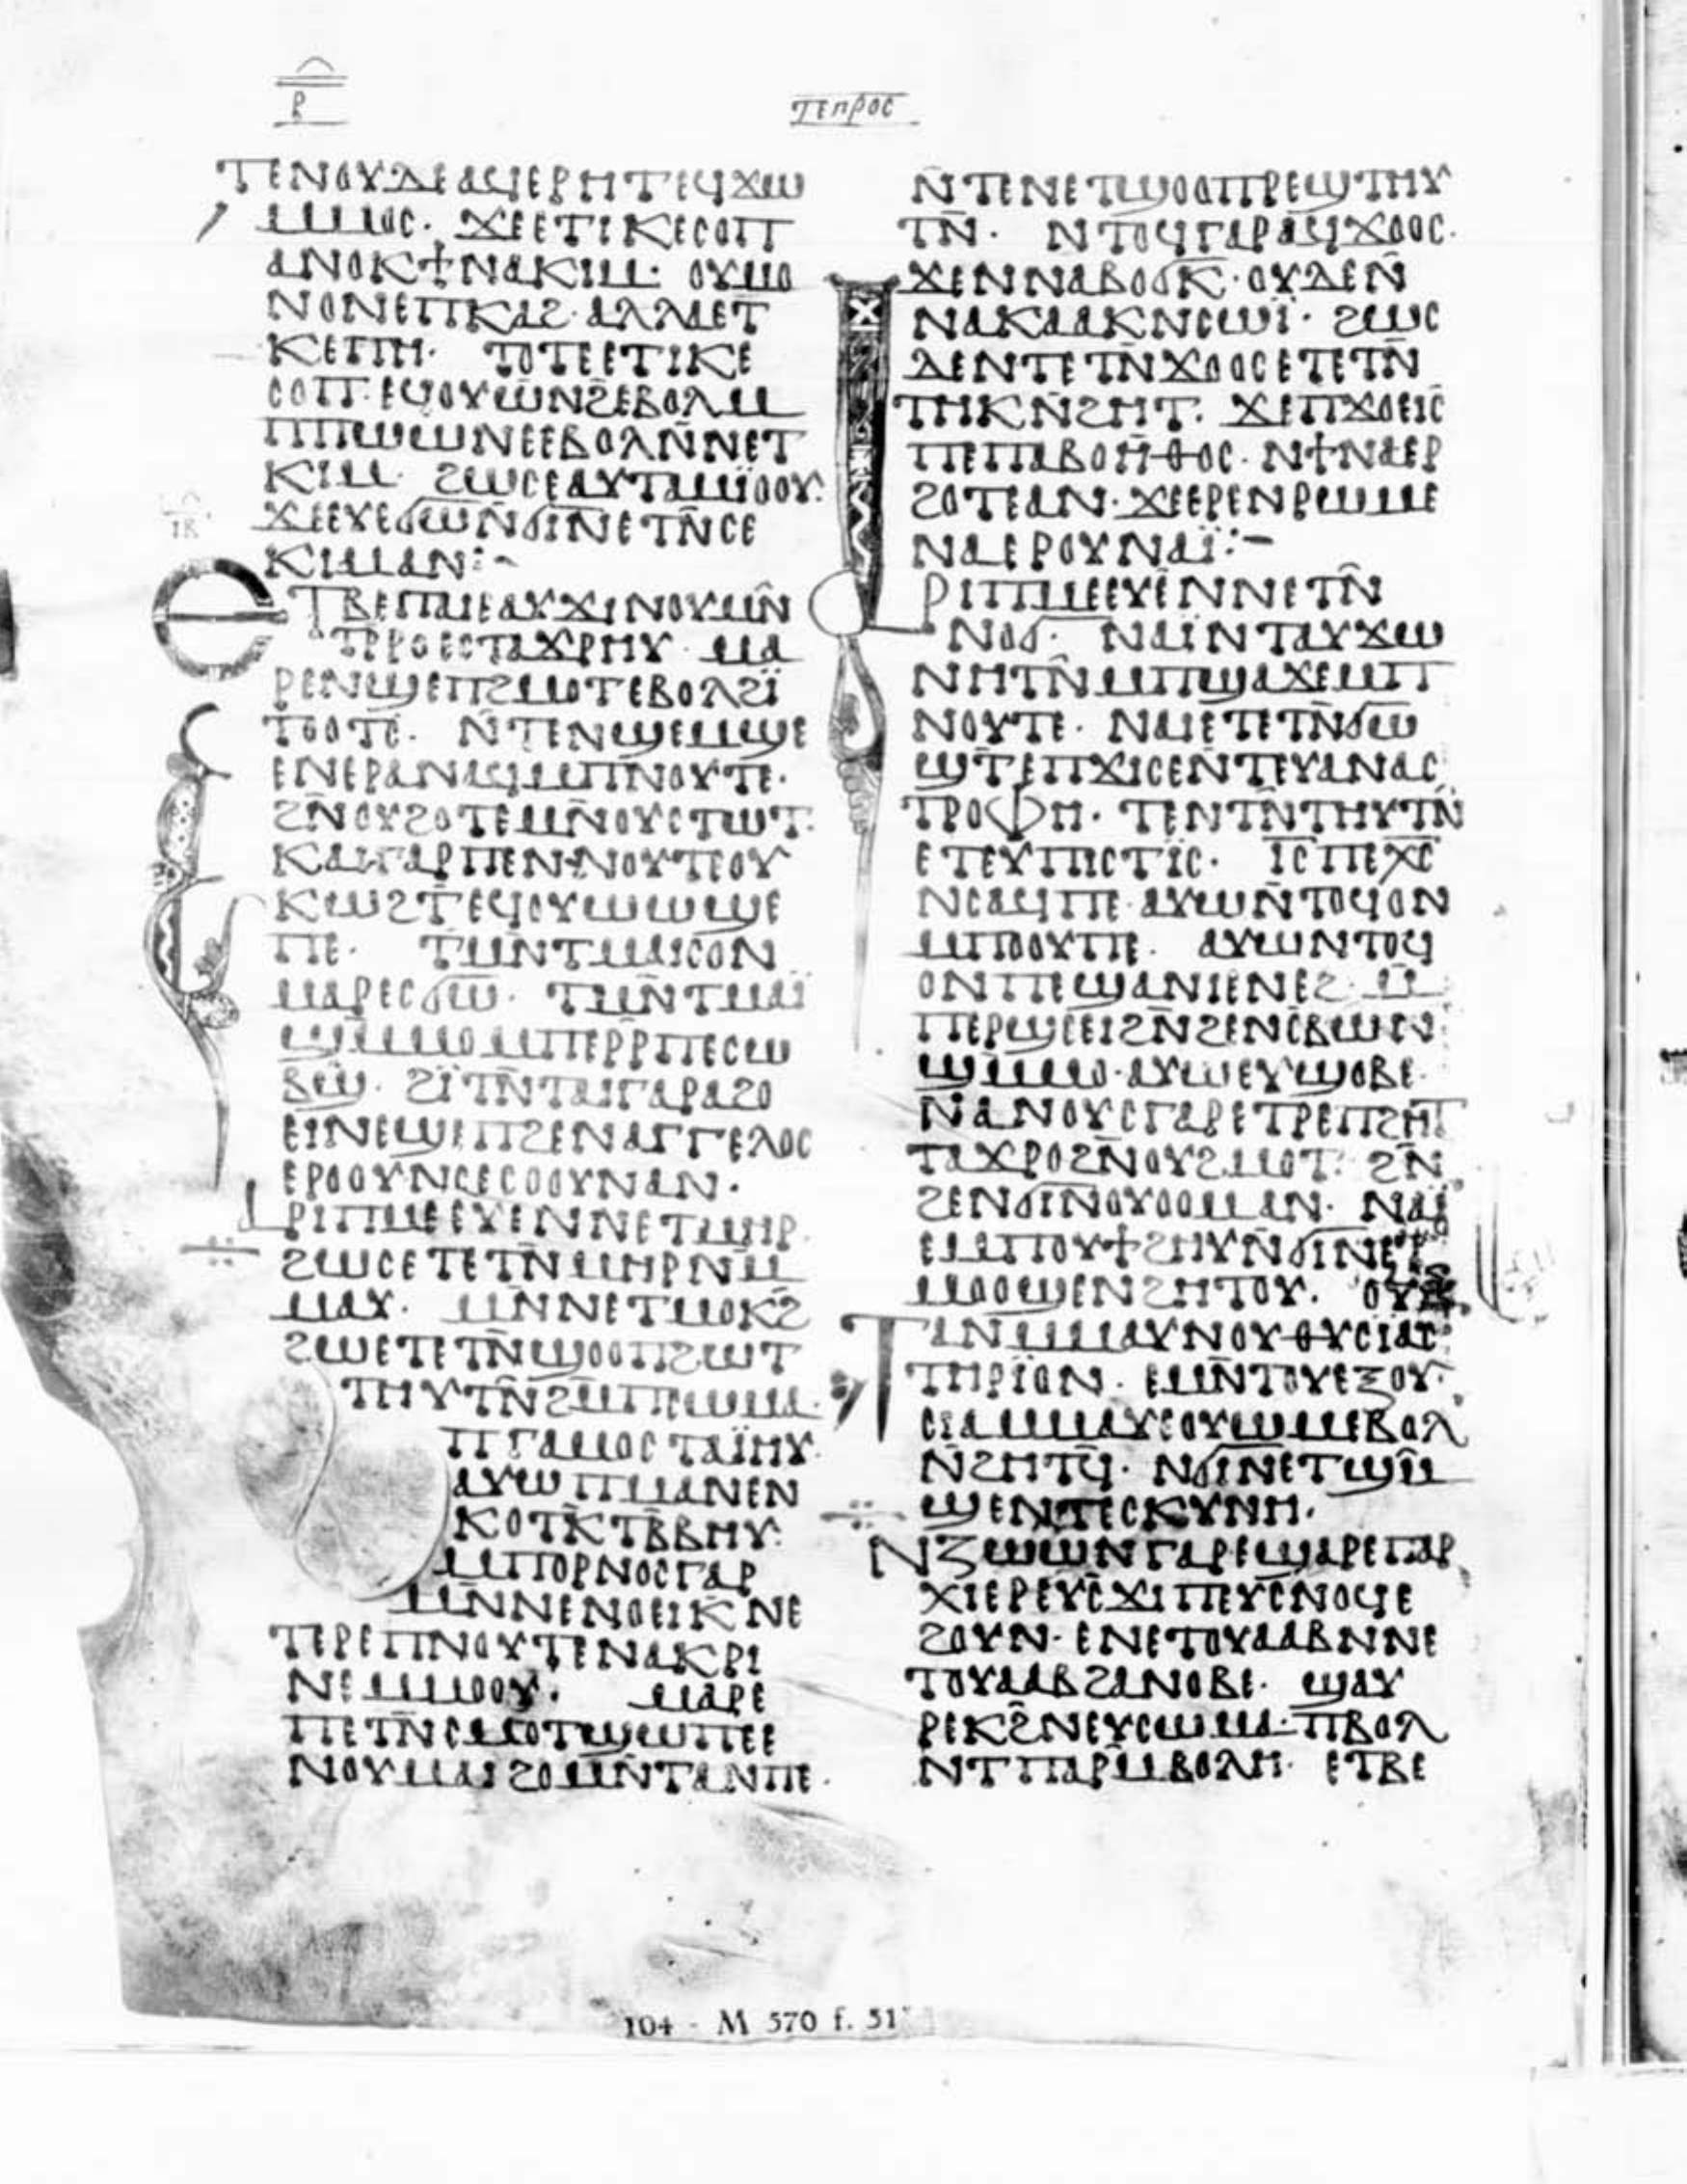 ⲣ̄
ⲧⲉⲡⲣⲟⲥ
ⲧⲉⲛⲟⲩⲇⲉⲁϥⲉⲣⲏⲧⲉϥϫⲱ
ⲙⲙⲟⲥ· ϫⲉⲉⲧⲓⲕⲉⲥⲟⲡ
ⲁⲛⲟⲕϯⲛⲁⲕⲓⲙ· ⲟⲩⲙⲟ
ⲛⲟⲛⲉⲡⲕⲁϩ· ⲁⲗⲗⲁⲉⲧ
ⲕⲉⲡⲏ· ⲧⲟⲧⲉⲉⲧⲓⲕⲉ
ⲥⲟⲡ· ⲉϥⲟⲩⲱⲛϩⲉⲃⲟⲗⲙ̄
ⲡⲡⲱⲱⲛⲉⲉⲃⲟⲗⲛ̄ⲛⲉⲧ
ⲕⲓⲙ· ϩⲱⲥⲉⲁⲩⲧⲁⲙⲓ̈ⲟⲟⲩ·
ϫⲉⲉⲩⲉϭⲱⲛ̄ϭⲓⲛⲉⲧⲛ̄ⲥⲉ
ⲕⲓⲙⲁⲛ:-
ⲓⲃ
ⲉⲧⲃⲉⲡⲁⲓⲉⲁⲩϫⲓⲛⲟⲩⲙⲛ̄
ⲧⲣ̄ⲣⲟⲉⲥⲧⲁϫⲣⲏⲩ· ⲙⲁ
ⲣⲉⲛϣⲉⲡϩⲙⲟⲧⲉⲃⲟⲗϩⲓ̈
ⲧⲟⲟⲧⲥ̄· ⲛ̄ⲧⲉⲛϣⲉⲙϣⲉ
ⲉⲛⲉⲣⲁⲛⲁϥⲙⲡⲛⲟⲩⲧⲉ·
ϩⲛ̄ⲟⲩϩⲟⲧⲉⲙⲛ̄ⲟⲩⲥⲧⲱⲧ·
ⲕⲁⲓⲅⲁⲣⲡⲉⲛⲛⲟⲩⲧⲉⲟⲩ
ⲕⲱϩⲧ̄ⲉϥⲟⲩⲱⲱϣⲉ
ⲡⲉ· ⲧⲙ̄ⲛⲧⲙⲁⲓⲥⲟⲛ
ⲙⲁⲣⲉⲥϭⲱ· ⲧⲙⲛ̄ⲧⲙⲁⲓ̈
ϣⲙ̄ⲙⲟⲙⲡⲉⲣⲣ̄ⲡⲉⲥⲱ
ⲃϣ̄· ϩⲓ̈ⲧⲛ̄ⲧⲁⲓⲅⲁⲣⲁϩⲟ
ⲉⲓⲛⲉϣⲉⲡϩⲉⲛⲁⲅⲅⲉⲗⲟⲥ
ⲉⲣⲟⲟⲩⲛⲥⲉⲥⲟⲟⲩⲛⲁⲛ·
ⲁⲣⲓⲡⲙⲉⲉⲩⲉⲛⲛⲉⲧⲙⲏⲣ·
ϩⲱⲥⲉⲧⲉⲧⲛ̄ⲙⲏⲣⲛⲙ̄
ⲙⲁⲩ· ⲙⲛ̄ⲛⲉⲧⲙⲟⲕϩ̄
ϩⲱⲉⲧⲉⲧⲛ̄ϣⲟⲟⲡϩⲱⲧ
ⲧⲏⲩⲧⲛ̄ϩⲙ̄ⲡⲥⲱⲙⲁ·
ⲡⲅⲁⲙⲟⲥⲧⲁⲓ̈ⲏⲩ·
ⲁⲩⲱⲡⲙⲁⲛⲉⲛ
ⲕⲟⲧⲕ̄ⲧⲃ̄ⲃⲏⲩ·
ⲙⲡⲟⲣⲛⲟⲥⲅⲁⲣ
ⲙⲛ̄ⲛⲉⲛⲟⲉⲓⲕⲛⲉ
ⲧⲉⲣⲉⲡⲛⲟⲩⲧⲉⲛⲁⲕⲣⲓ
ⲛⲉⲙⲙⲟⲟⲩ· ⲙⲁⲣⲉ
ⲡⲉⲧⲛ̄ⲥⲙⲟⲧϣⲱⲡⲉⲉ
ⲛⲟⲩⲙⲁⲓϩⲟⲙⲛ̄ⲧⲁⲛⲡⲉ·
ⲛ̄ⲧⲉⲛⲉⲧϣⲟⲟⲡⲣⲉϣⲧⲏⲩ
ⲧⲛ̄· ⲛⲧⲟϥⲅⲁⲣⲁϥϫⲟⲟⲥ·
ϫⲉⲛⲛⲁⲃⲟϭⲕ̄· ⲟⲩⲇⲉⲛ̄
ⲛⲁⲕⲁⲁⲕⲛⲥⲱⲓ̈· ϩⲱⲥ
ⲇⲉⲛⲧⲉⲧⲛ̄ϫⲟⲟⲥⲉⲧⲉⲧⲛ̄
ⲧⲏⲕⲛ̄ϩⲏⲧ· ϫⲉⲡϫⲟⲉⲓⲥ
ⲡⲉⲡⲁⲃⲟⲏⲑⲟⲥ· ⲛϯⲛⲁⲉⲣ
ϩⲟⲧⲉⲁⲛ· ϫⲉⲉⲣⲉⲛⲣⲱⲙⲉ
ⲛⲁⲉⲣⲟⲩⲛⲁⲓ̈:-
ⲁⲣⲓⲡⲙⲉⲉⲩⲉⲛⲛⲉⲧⲛ̄
ⲛⲟϭ· ⲛⲁⲓ̈ⲛⲧⲁⲩϫⲱ
ⲛⲏⲧⲛ̄ⲙⲡϣⲁϫⲉⲙⲡ
ⲛⲟⲩⲧⲉ· ⲛⲁⲓⲉⲧⲉⲧⲛ̄ϭⲱ
ϣⲧⲉⲡϫⲓⲥⲉⲛⲧⲉⲩⲁⲛⲁⲥ
ⲧⲣⲟⲫⲏ· ⲧⲉⲛⲧⲛ̄ⲧⲏⲩⲧⲛ̄
ⲉⲧⲉⲩⲡⲓⲥⲧⲓ̈ⲥ· ⲓ̄ⲥ̄ⲡⲉⲭ̄ⲥ̄
ⲛⲥⲁϥⲡⲉ· ⲁⲩⲱⲛ̄ⲧⲟϥⲟⲛ
ⲙⲡⲟⲟⲩⲡⲉ· ⲁⲩⲱⲛⲧⲟϥ
ⲟⲛⲡⲉϣⲁⲛⲓⲉⲛⲉϩ· ⲙ̄
ⲡⲉⲣϣⲉⲉⲓϩⲛ̄ϩⲉⲛⲥⲃⲱⲛ
ϣⲙ̄ⲙⲟ· ⲁⲩⲱⲉⲩϣⲟⲃⲉ·
ⲛⲁⲛⲟⲩⲥⲅⲁⲣⲉⲧⲣⲉⲡϩⲏⲧ
ⲧⲁϫⲣⲟϩⲛ̄ⲟⲩϩⲙⲟⲧ· ϩⲛ̄
ϩⲉⲛϭⲓⲛⲟⲩⲟⲟⲙⲁⲛ· ⲛⲁⲓ̈
ⲉⲙⲡⲟⲩϯϩⲏⲩⲛ̄ϭⲓⲛⲉⲧ
ⲙⲟⲟϣⲉⲛϩⲏⲧⲟⲩ· ⲟⲩⲛ̄
ⲧⲁⲛⲙⲙⲁⲩⲛⲟⲩⲑⲩⲥⲓⲁⲥ
ⲧⲏⲣⲓ̈ⲟⲛ· ⲉⲙⲛ̄ⲧⲟⲩⲉⲝⲟⲩ
ⲥⲓⲁⲙⲙⲁⲩⲉⲟⲩⲱⲙⲉⲃⲟⲗ
ⲛ̄ϩⲏⲧϥ̄· ⲛϭⲓⲛⲉⲧϣⲙ̄
ϣⲉⲛⲧⲉⲥⲕⲩⲛⲏ·
ⲛⲍⲱⲱⲛⲅⲁⲣⲉϣⲁⲣⲉⲡⲁⲣ
ⲭⲓⲉⲣⲉⲩⲥϫⲓⲡⲉⲩⲥⲛⲟϥⲉ
ϩⲟⲩⲛ· ⲉⲛⲉⲧⲟⲩⲁⲁⲃⲛⲛⲉ
ⲧⲟⲩⲁⲁⲃϩⲁⲛⲟⲃⲉ· ϣⲁⲩ
ⲣⲉⲕϩ̄ⲛⲉⲩⲥⲱⲙⲁ· ⲡⲃⲟⲗ
ⲛⲧⲡⲁⲣⲙ̄ⲃⲟⲗⲏ· ⲉⲧⲃⲉ
104 - M 570 f. 51ᵛ